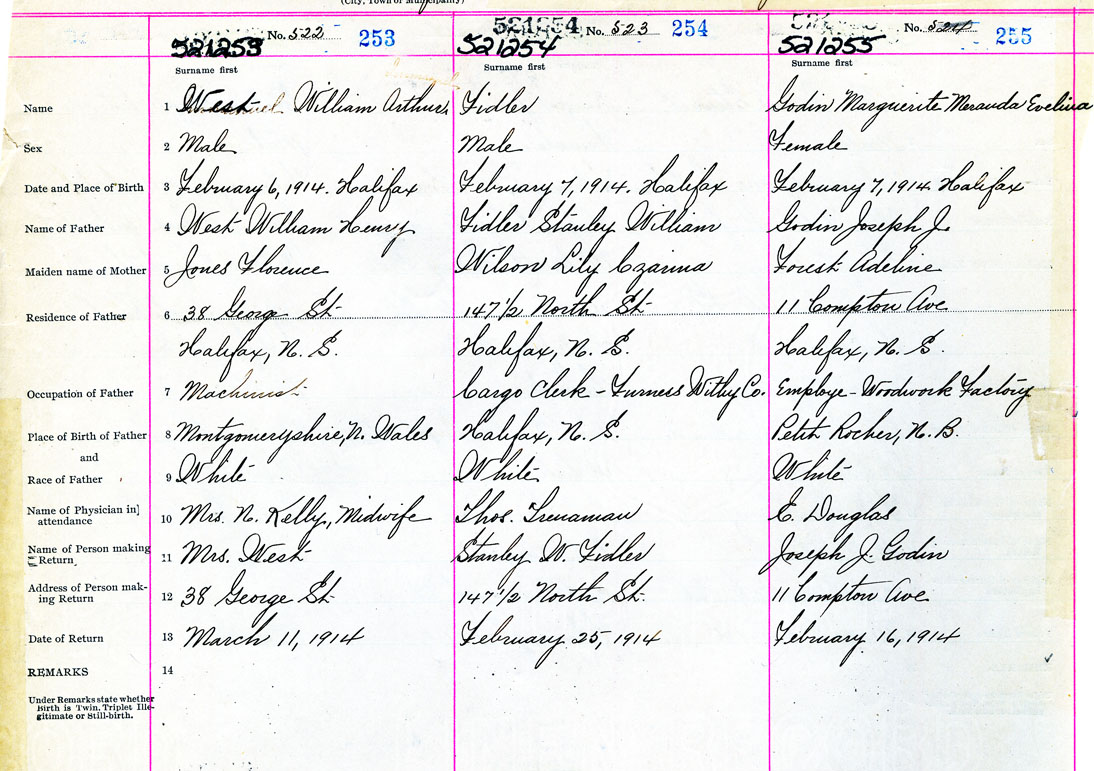 (City, Town or Municipality)
521253 No. 522 253
521254 521254 No. 523 254
521255 No. 524 255
Surname first Surname first Surname first
Name 1 West William Arthur Fidler Godin Marguerite Meranda Evelina
Sex 2 Male Male Female
Date and Place of Birth 3 February 6, 1914. Halifax February 7, 1914. Halifax February 7, 1914 Halifax
Name of Father 4 West William Henry Fidler Stanley William Godin Joseph J.
Maiden name of Mother 5 Jones Florence Wilson Lily Czarina Forest Adeline
Residence of Father 6 38 George St. 147 1/2 North St. 11 Compton Ave
Halifax, N. S. Halifax, N. S. Halifax, N. S.
Occupation of Father 7 Machinist Cargo Clerk - Furness Withy Co. Employe - Woodwork Factory
Place of Birth of Father 8 Montgomeryshire, N. Wales Halifax, N. S. Petit Rocher, N. B.
and
Race of Father 9 White White White
Name of Physician in attendance 10 Mrs. N. Kelly, Midwife Thos. Trenaman E. Douglas
Name of Person making Return 11 Mrs. West Stanley W. Fidler Joseph J. Godin
Address of Person making Return 12 38 George St. 147 1/2 North St. 11 Compton Ave
Date of Return 13 March 11, 1914 February 25, 1914 February 16, 1914
REMARKS 14
Under Remarks state whether
Birth is Twin, Triplet Ille-
gitimate or Still-birth.